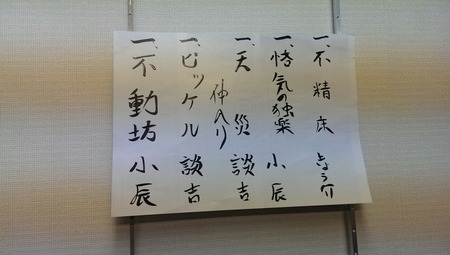 一、不精床 あう介
一、悋気の独楽 小辰
一、天災 談吉
仲入り
一、ピッケル 談吉
一、不動坊 小辰